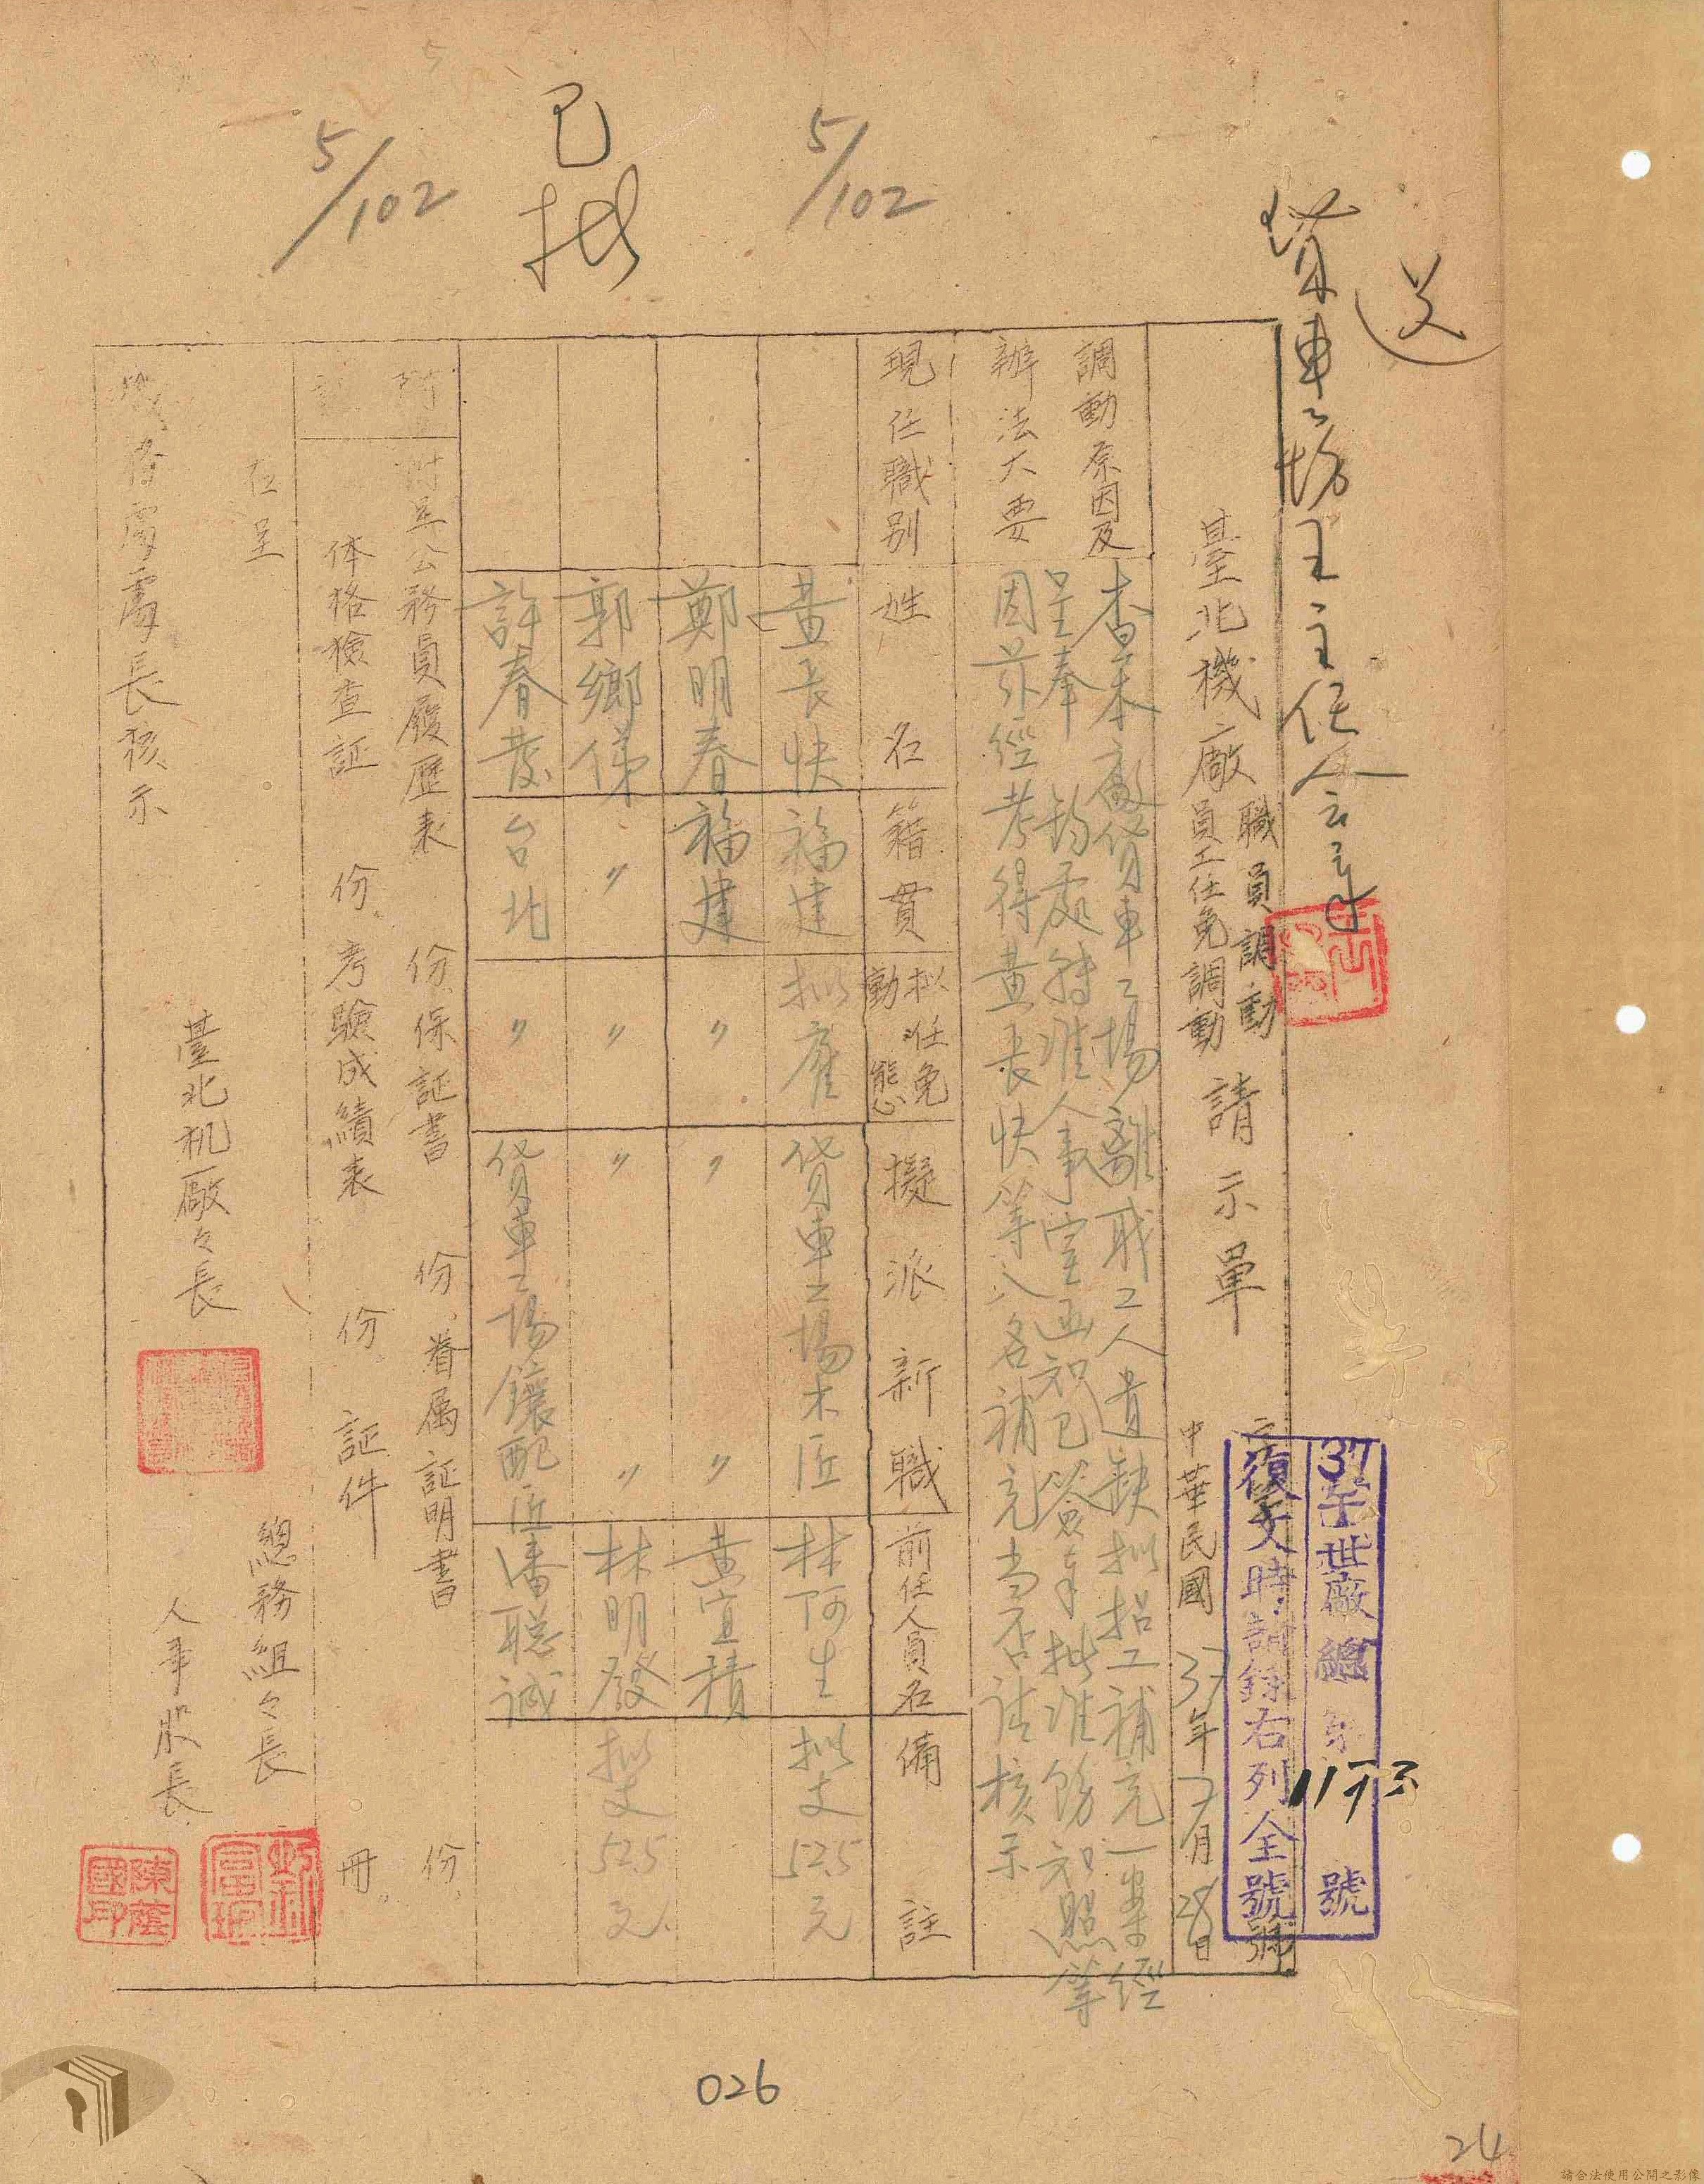 送
貨車工場王主任会章
5/102
已批
5/102
37午世廠總東
號
復文時請録右列全號
臺北機廠
職員調動
員工任免調動
請示單
中華民國37年7月28日
號
調動原因及
辦法大要
查本廠貨車工場離職工人遺缺拟招工補充一案經
呈奉 鈞處轉准人事室函知已簽奉批准飭知照等
因茲經考得黃長快等八名補充当否請核示
現任職別
姓名
籍貫
拟任免
動態
擬派新職
前任人員名
備註
黃長快 福建 拟雇 貨車工場木匠 林阿生 拟支525元
鄭明春 福建 〃 〃 〃 黃宜積
郭鄉俤 〃 〃 〃 〃 林明發 拟支525元
許春發 台北 〃 貨車工場鑲配匠 潘聡誠
附
附呈公務員履歷表 份、保証書 份、眷属証明書 份、
記
体格檢查証 份、考驗成績表 份、証件 冊。
右呈
機務處處長核示
臺北机厰々長
總務組々長
人事股長
陳蔭國印
026
24
請合法使用公開之影像